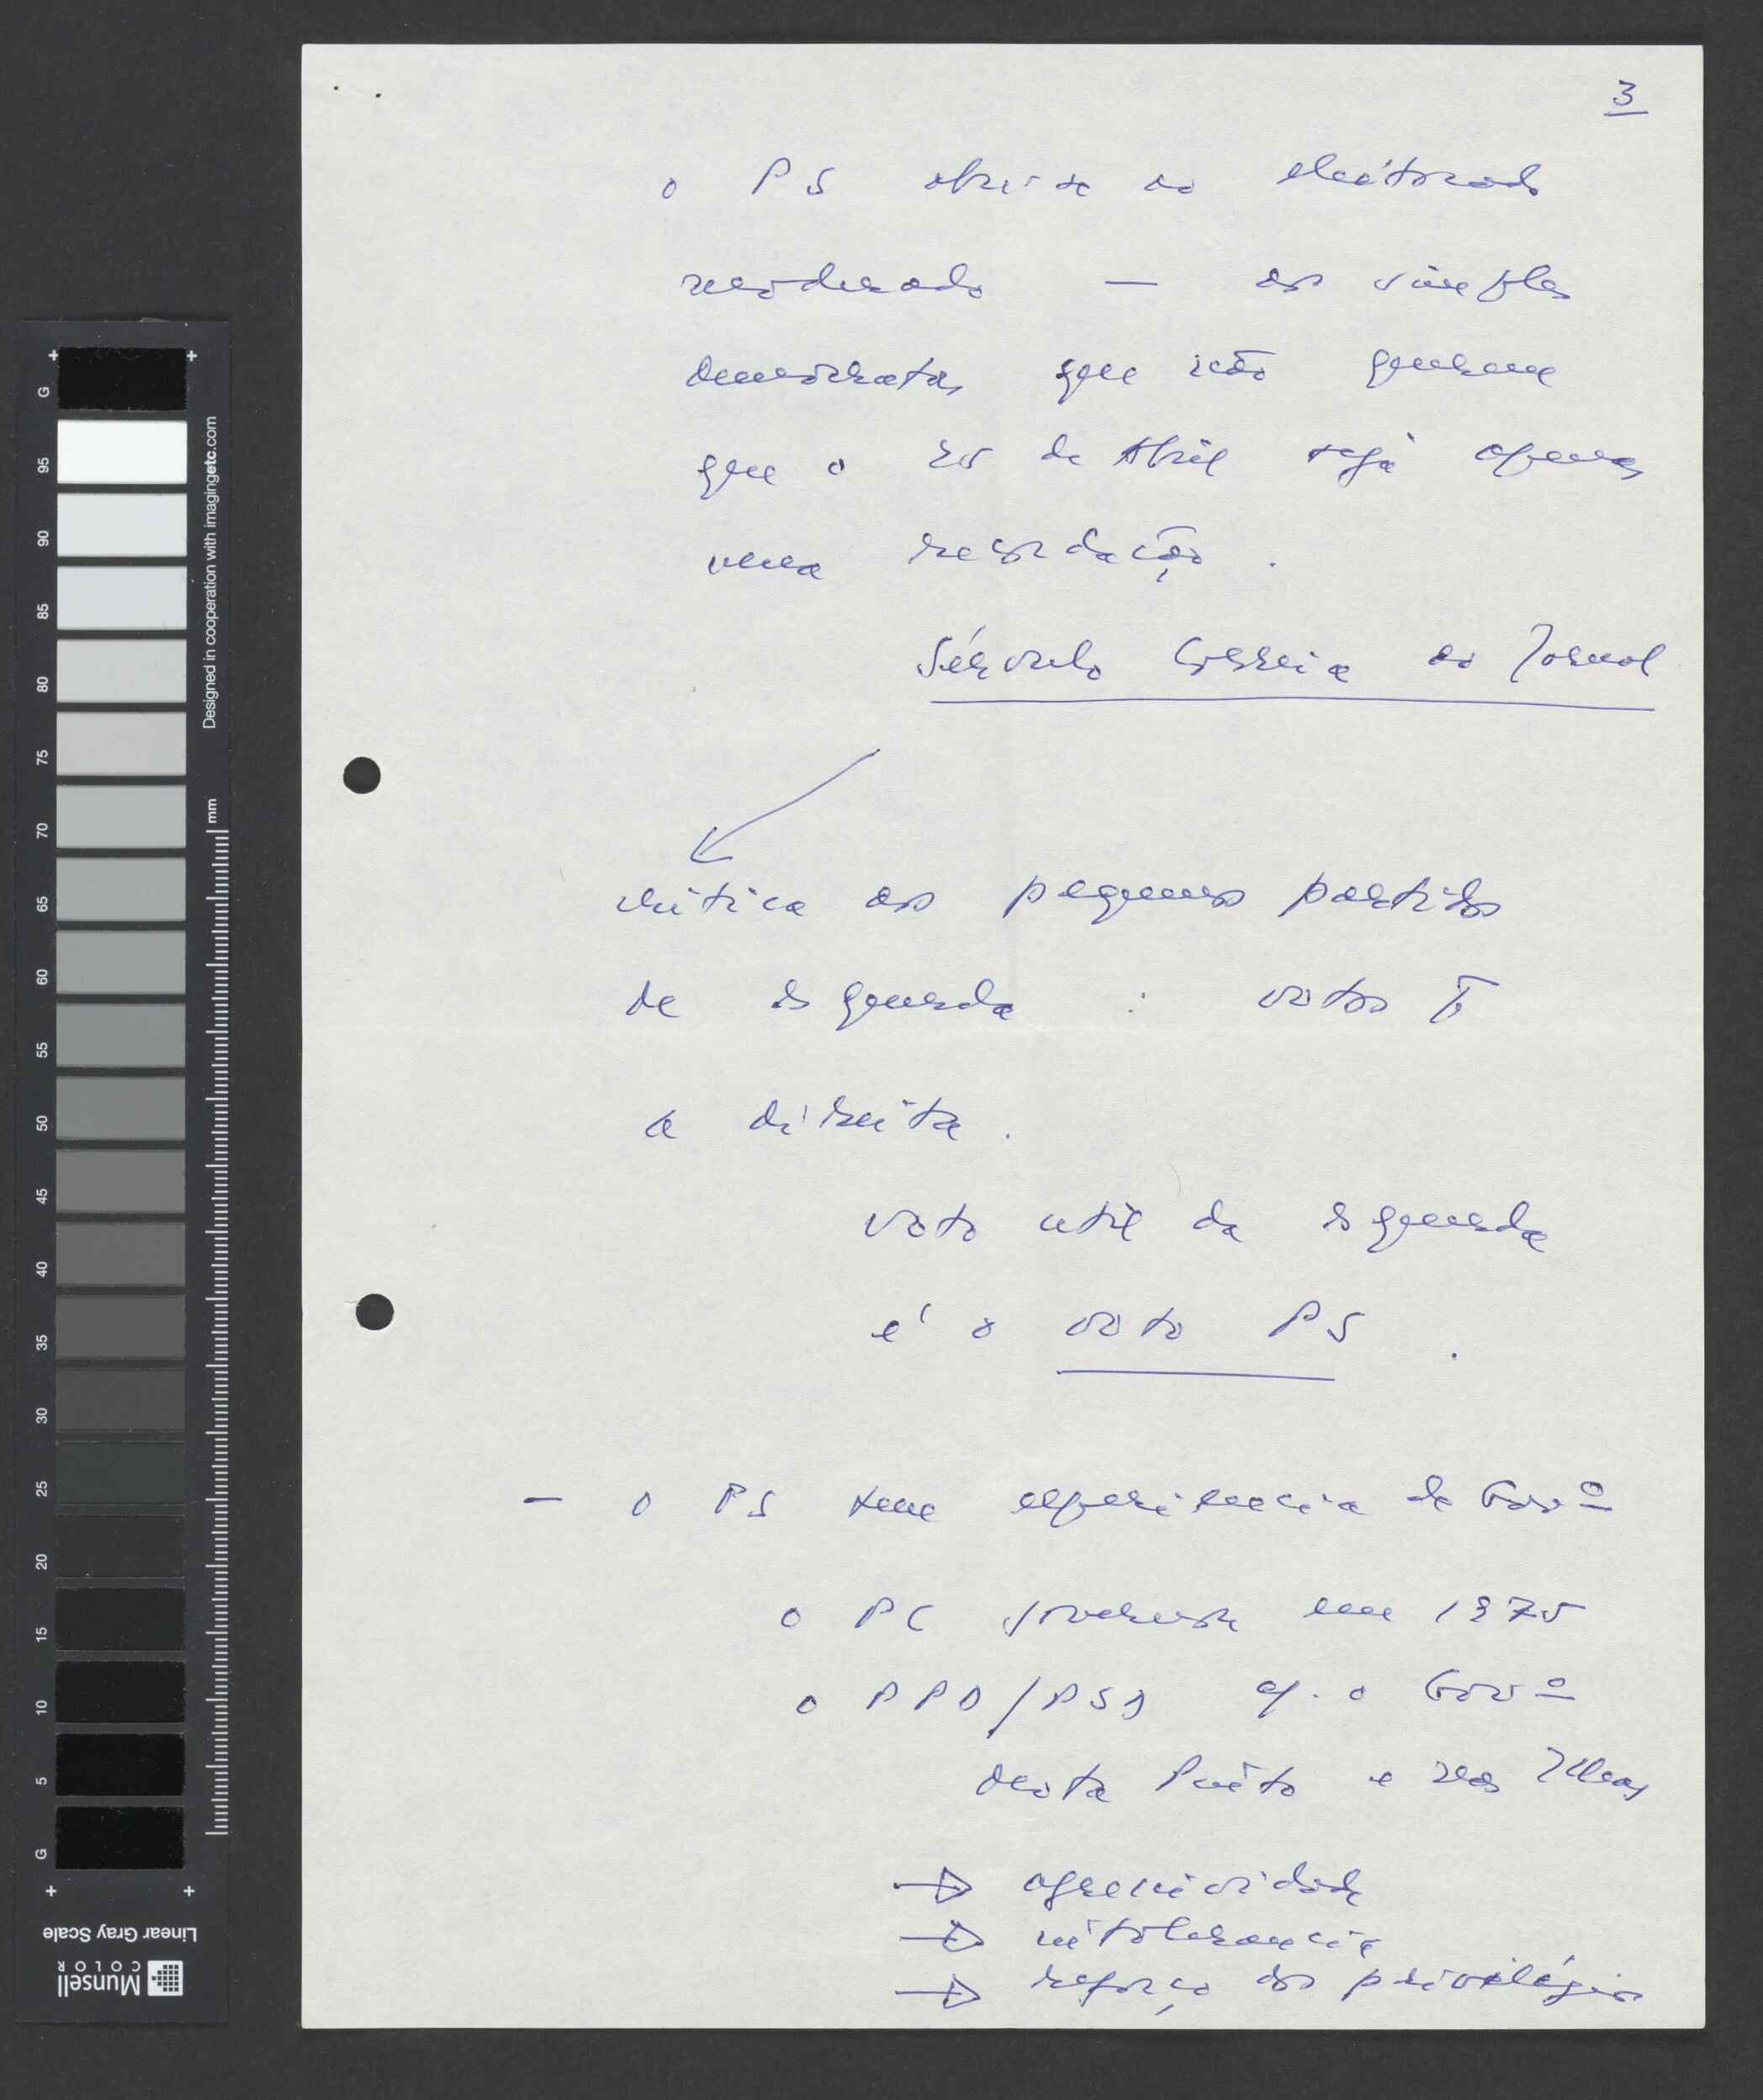 3
o PS abriu-se ao eleitorado
moderado — aos simples
democratas, que não querem
que o 25 de Abril seja apenas
uma recordação.
Sérvulo Correia ao Jornal
crítica aos pequenos partidos
de esquerda : votos
a direita.
voto util da esquerda
é o voto PS.
— o PS tem experiencia de Govº
o PC governou em 1975
o PPD/PSD o Govº
Mota Pinto e nas Ilhas
→ agressividade
→ intolerancia
→ reforço dos privilégios
G
95
90
85
80
75
70
65
60
55
50
45
40
35
30
25
20
15
10
5
G
Designed in cooperation with imagingetc.com
mm
Linear Gray Scale
Munsell
COLOR